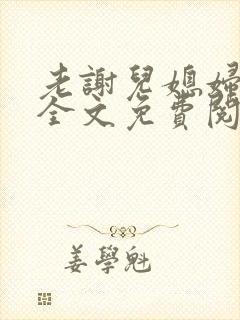 老謝兒媳婦
全文免費閱
姜學魁